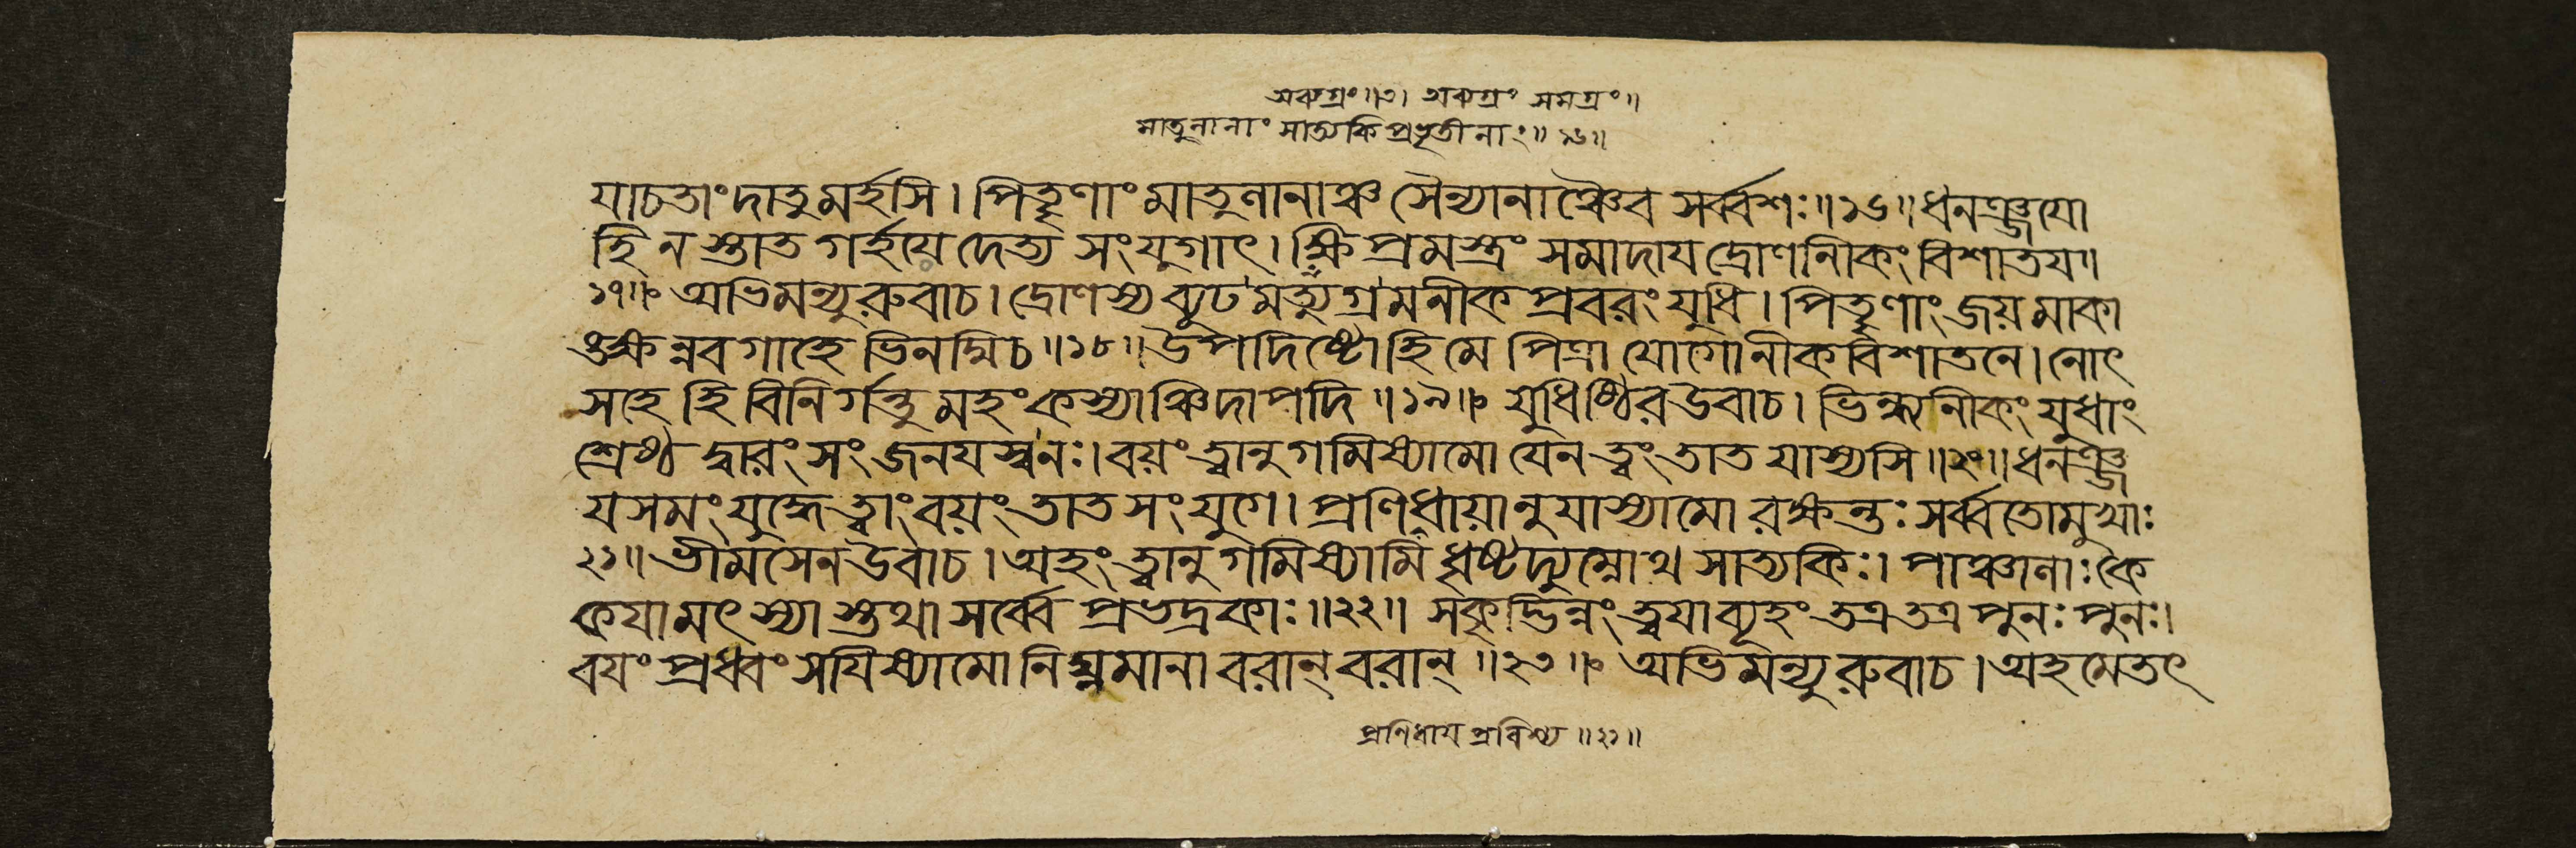 অব্যগ্রং॥৩। অব্যগ্রং সমগ্রং॥
মাতুলানাং সাত্যকিপ্রভৃতীনাং॥ ১৬॥
যাচতাং দাতুমর্হসি। পিতৄণাং মাতুলানাঞ্চ সৈন্যানাঞ্চৈব সর্ব্বশঃ॥১৬॥ধনঞ্জযো
হি ন স্তাত গর্হযেদেত্য সংযুগাৎ। ক্ষিপ্রমস্ত্রং সমাদায দ্রোণানীকং বিশাতয॥
১৭॥ঃ অভিমন্যুরুবাচ। দ্রোণস্য ব্যূঢমত্যুগ্রমনীকপ্রবরং যুধি। পিতৄণাং জয়মাকা
ঙক্ষন্নবগাহে ভিনদ্মি চ॥১৮॥উপদিষ্টো হি মে পিত্রা যোগোনীকবিশাতনে। নোৎ
সহে হি বিনির্গন্তুমহং কস্যাঞ্চিদাপদি॥১৯॥ঃ যুধিষ্ঠির উবাচ। ভিন্ধ্যনীকং যুধাং
শ্রেষ্ঠ দ্বারং সংজনযস্ব নঃ। বয়ং ত্বানুগমিষ্যামো যেন ত্বং তাত যাস্যসি॥২০॥ধনঞ্জ
যসমং যুদ্ধে ত্বাং বয়ং তাত সংযুগে। প্রণিধায়ানুযাস্যামো রক্ষন্তঃ সর্ব্বতোমুখাঃ
২১॥ ভীমসেন উবাচ। অহং ত্বানুগমিষ্যামি ধৃষ্টদ্যুম্নোথ সাত্যকিঃ। পাঞ্চালাঃ কৈ
কেযা মৎস্যাস্তথা সর্ব্বে প্রভদ্রকাঃ॥২২॥ সকৃদ্ভিন্নং ত্বযা ব্যূহং তত্র তত্র পুনঃ পুনঃ।
বযং প্রধ্বংসযিষ্যামো নিঘ্নমানা বরান্ বরান্॥২৩॥ঃ অভিমন্যুরুবাচ। অহমেতৎ
প্রণিধায প্রবিশ্য॥২১॥